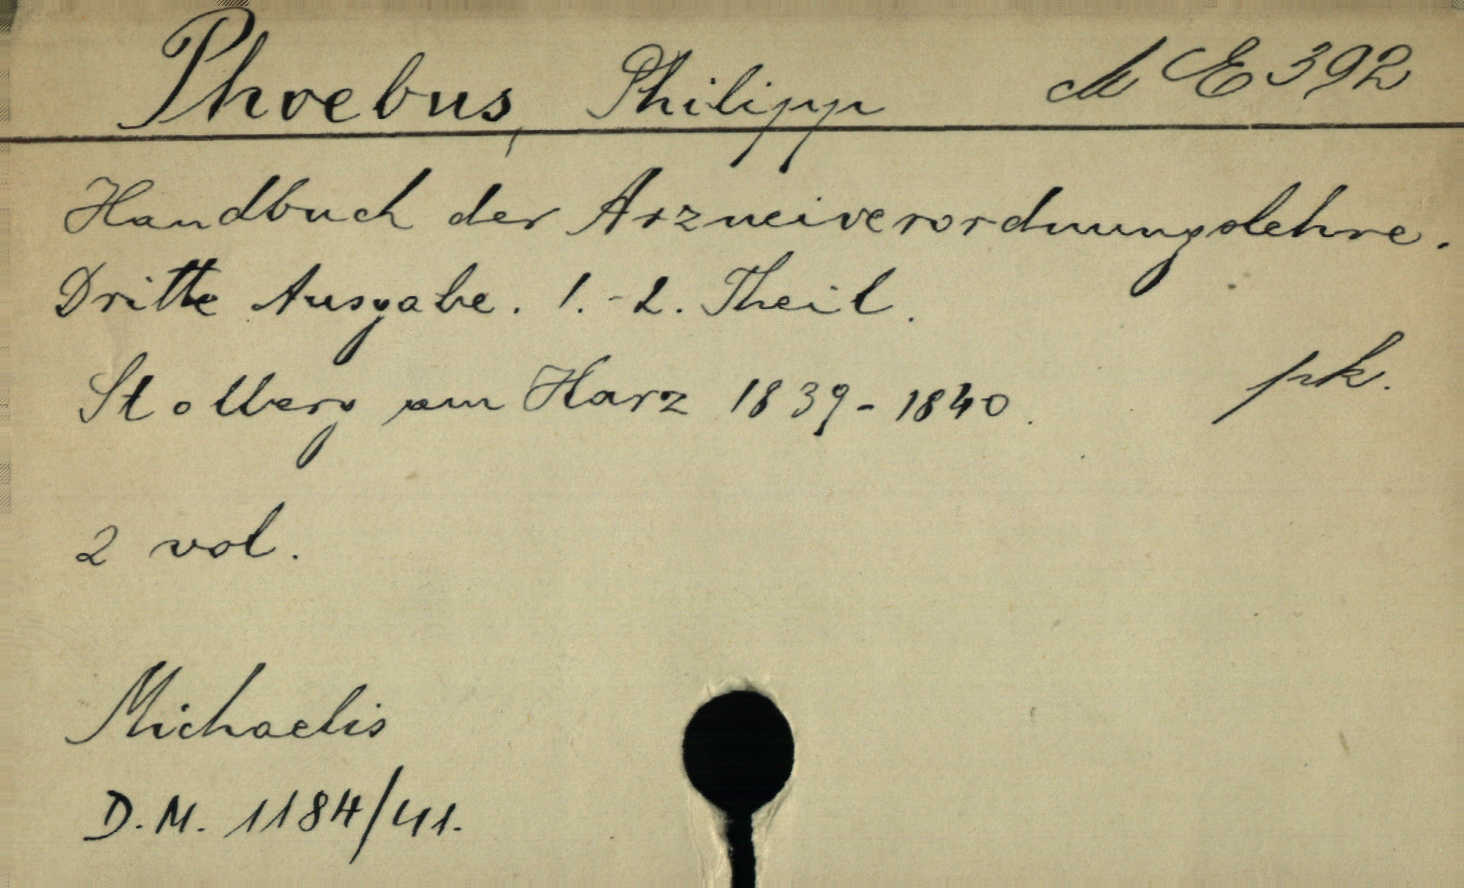 Phoebus, Philipp M E 392
Handbuch der Arzneiverordnungslehre.
Dritte Ausgabe. 1.-2. Theil.
Stolberg am Harz 1839-1840. pk.
2 vol.
Michaelis
D.M. 1184/41.